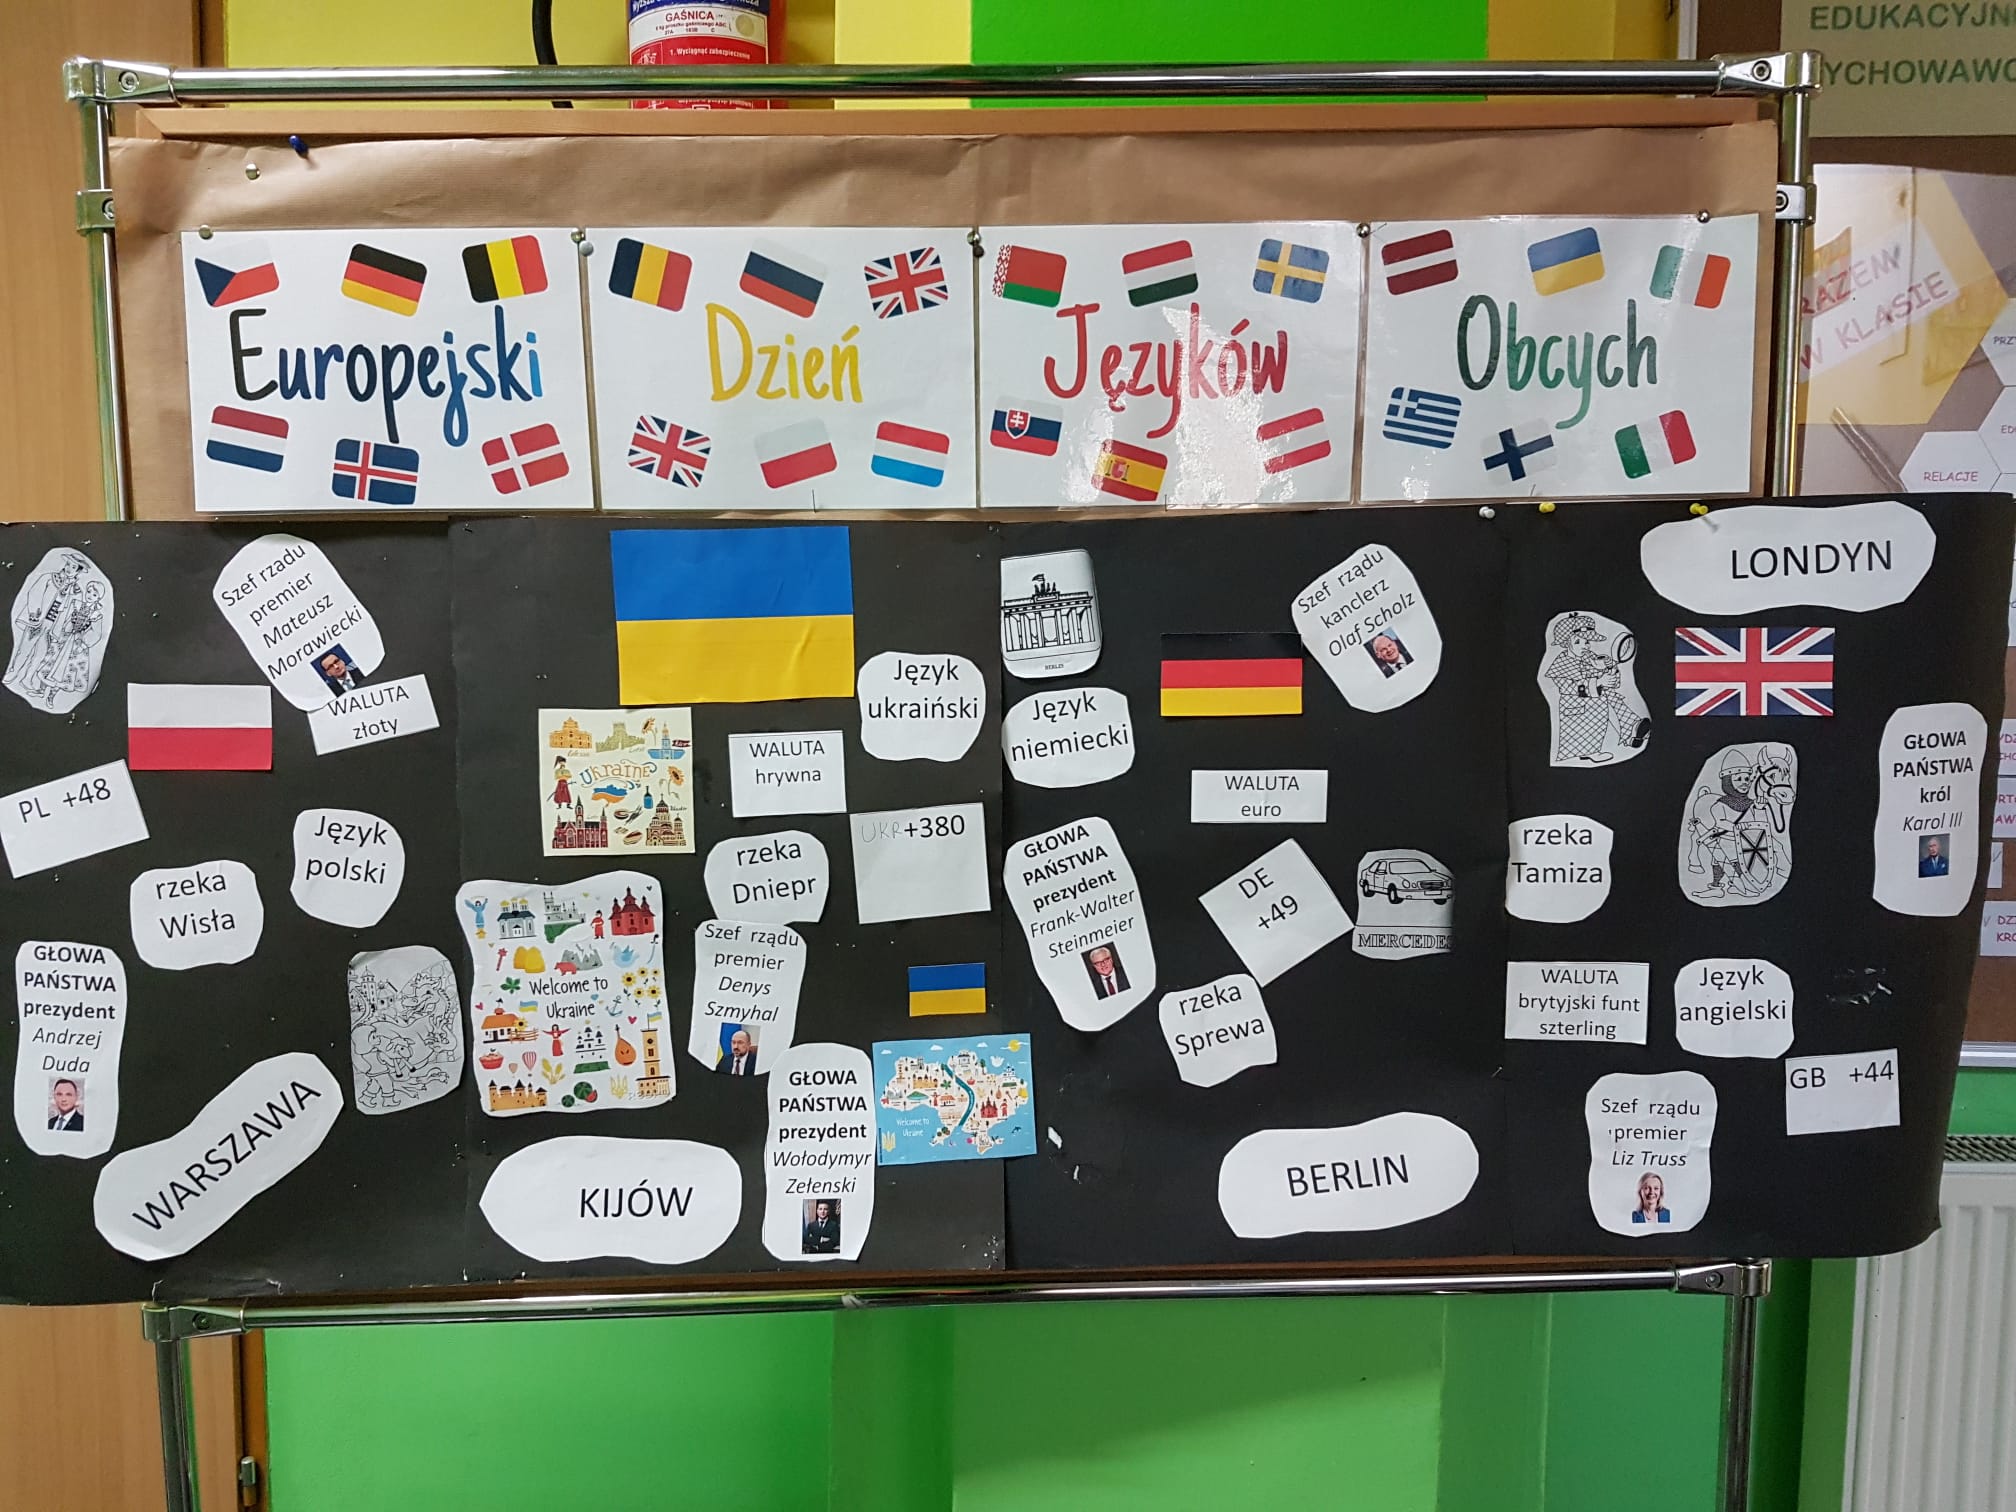 GAŚNICA
1. Wyciągnąć zabezpieczenie
EDUKACYJN
YCHOWAWC
RAZEM
W KLASIE
RELACJE
Europejski
Dzień
Języków
Obcych
Szef rzadu
premier
Mateusz
Morawiecki
WALUTA
złoty
PL +48
Język
polski
rzeka
Wisła
GŁOWA
PAŃSTWA
prezydent
Andrzej
Duda
WARSZAWA
Ukraine
Język
ukraiński
WALUTA
hrywna
UKR+380
rzeka
Dniepr
Welcome to
Ukraine
Szef rządu
premier
Denys
Szmyhal
GŁOWA
PAŃSTWA
prezydent
Wołodymyr
Zełenski
Welcome to
Ukraine
KIJÓW
BERLIN
Język
niemiecki
Szef rządu
kanclerz
Olaf Scholz
WALUTA
euro
GŁOWA
PAŃSTWA
prezydent
Frank-Walter
Steinmeier
DE
+49
MERCEDES
rzeka
Sprewa
BERLIN
LONDYN
GŁOWA
PAŃSTWA
król
Karol III
rzeka
Tamiza
WALUTA
brytyjski funt
szterling
Język
angielski
GB +44
Szef rządu
premier
Liz Truss